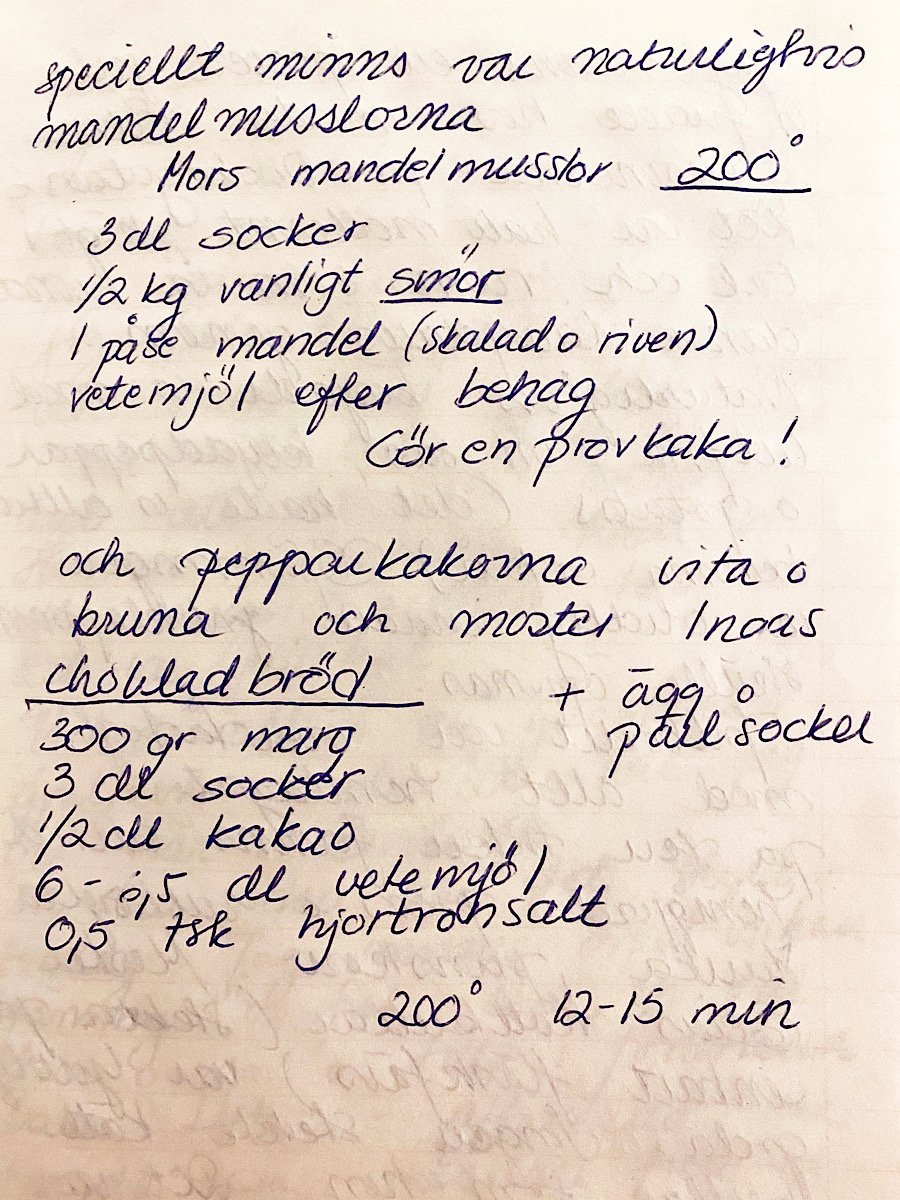 speciellt minns var naturligtvis
mandelmusslorna
Mors mandelmusslor 200°
3 dl socker
1/2 kg vanligt smör
1 påse mandel (skalad o riven)
vetemjöl efter behag
Gör en provkaka!
och pepparkakorna vita o
bruna och moster Ingas
chokladbröd + ägg o
pärlsocker
300 gr marg
3 dl socker
1/2 dl kakao
6 - 6,5 dl vetemjöl
0,5 tsk hjortronsalt
200° 12-15 min